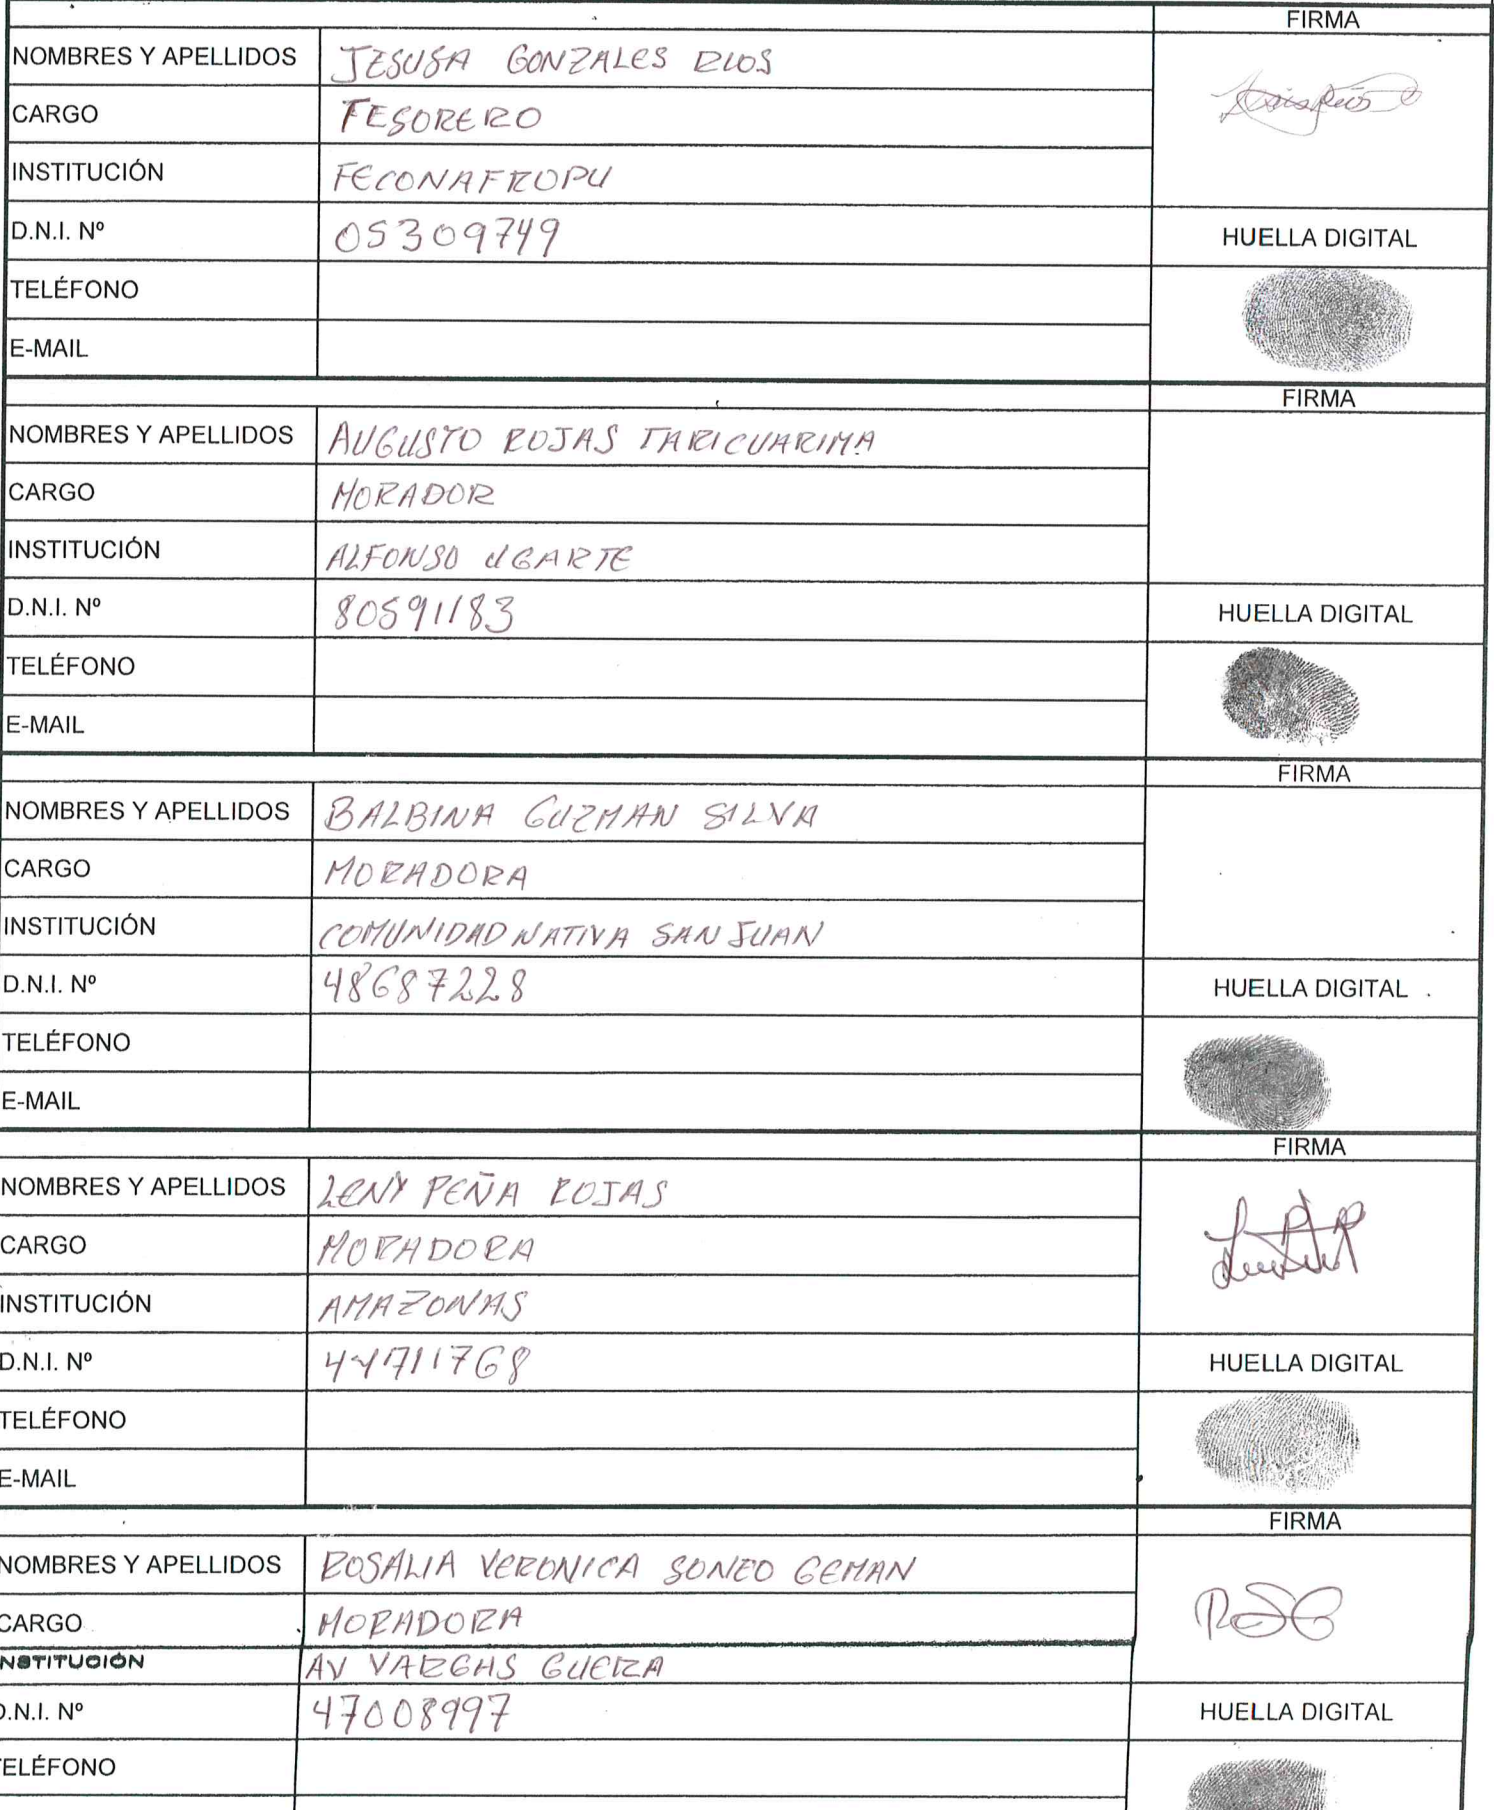 FIRMA
NOMBRES Y APELLIDOS JESUSA GONZALES RIOS
CARGO TESORERO
INSTITUCIÓN FECONAFROPU
D.N.I. Nº 05309749 HUELLA DIGITAL
TELÉFONO
E-MAIL
FIRMA
NOMBRES Y APELLIDOS AUGUSTO ROJAS TARICUARIMA
CARGO MORADOR
INSTITUCIÓN ALFONSO UGARTE
D.N.I. Nº 80591183 HUELLA DIGITAL
TELÉFONO
E-MAIL
FIRMA
NOMBRES Y APELLIDOS BALBINA GUZMAN SILVA
CARGO MORADORA
INSTITUCIÓN COMUNIDAD NATIVA SAN JUAN
D.N.I. Nº 48687228 HUELLA DIGITAL
TELÉFONO
E-MAIL
FIRMA
NOMBRES Y APELLIDOS LENY PEÑA ROJAS
CARGO MORADORA
INSTITUCIÓN AMAZONAS
D.N.I. Nº HUELLA DIGITAL
TELÉFONO
E-MAIL
FIRMA
NOMBRES Y APELLIDOS ROSALIA VERONICA GEMAN
CARGO MORADORA
INSTITUCIÓN AV VARGAS GUERRA
D.N.I. Nº 47008997 HUELLA DIGITAL
TELÉFONO